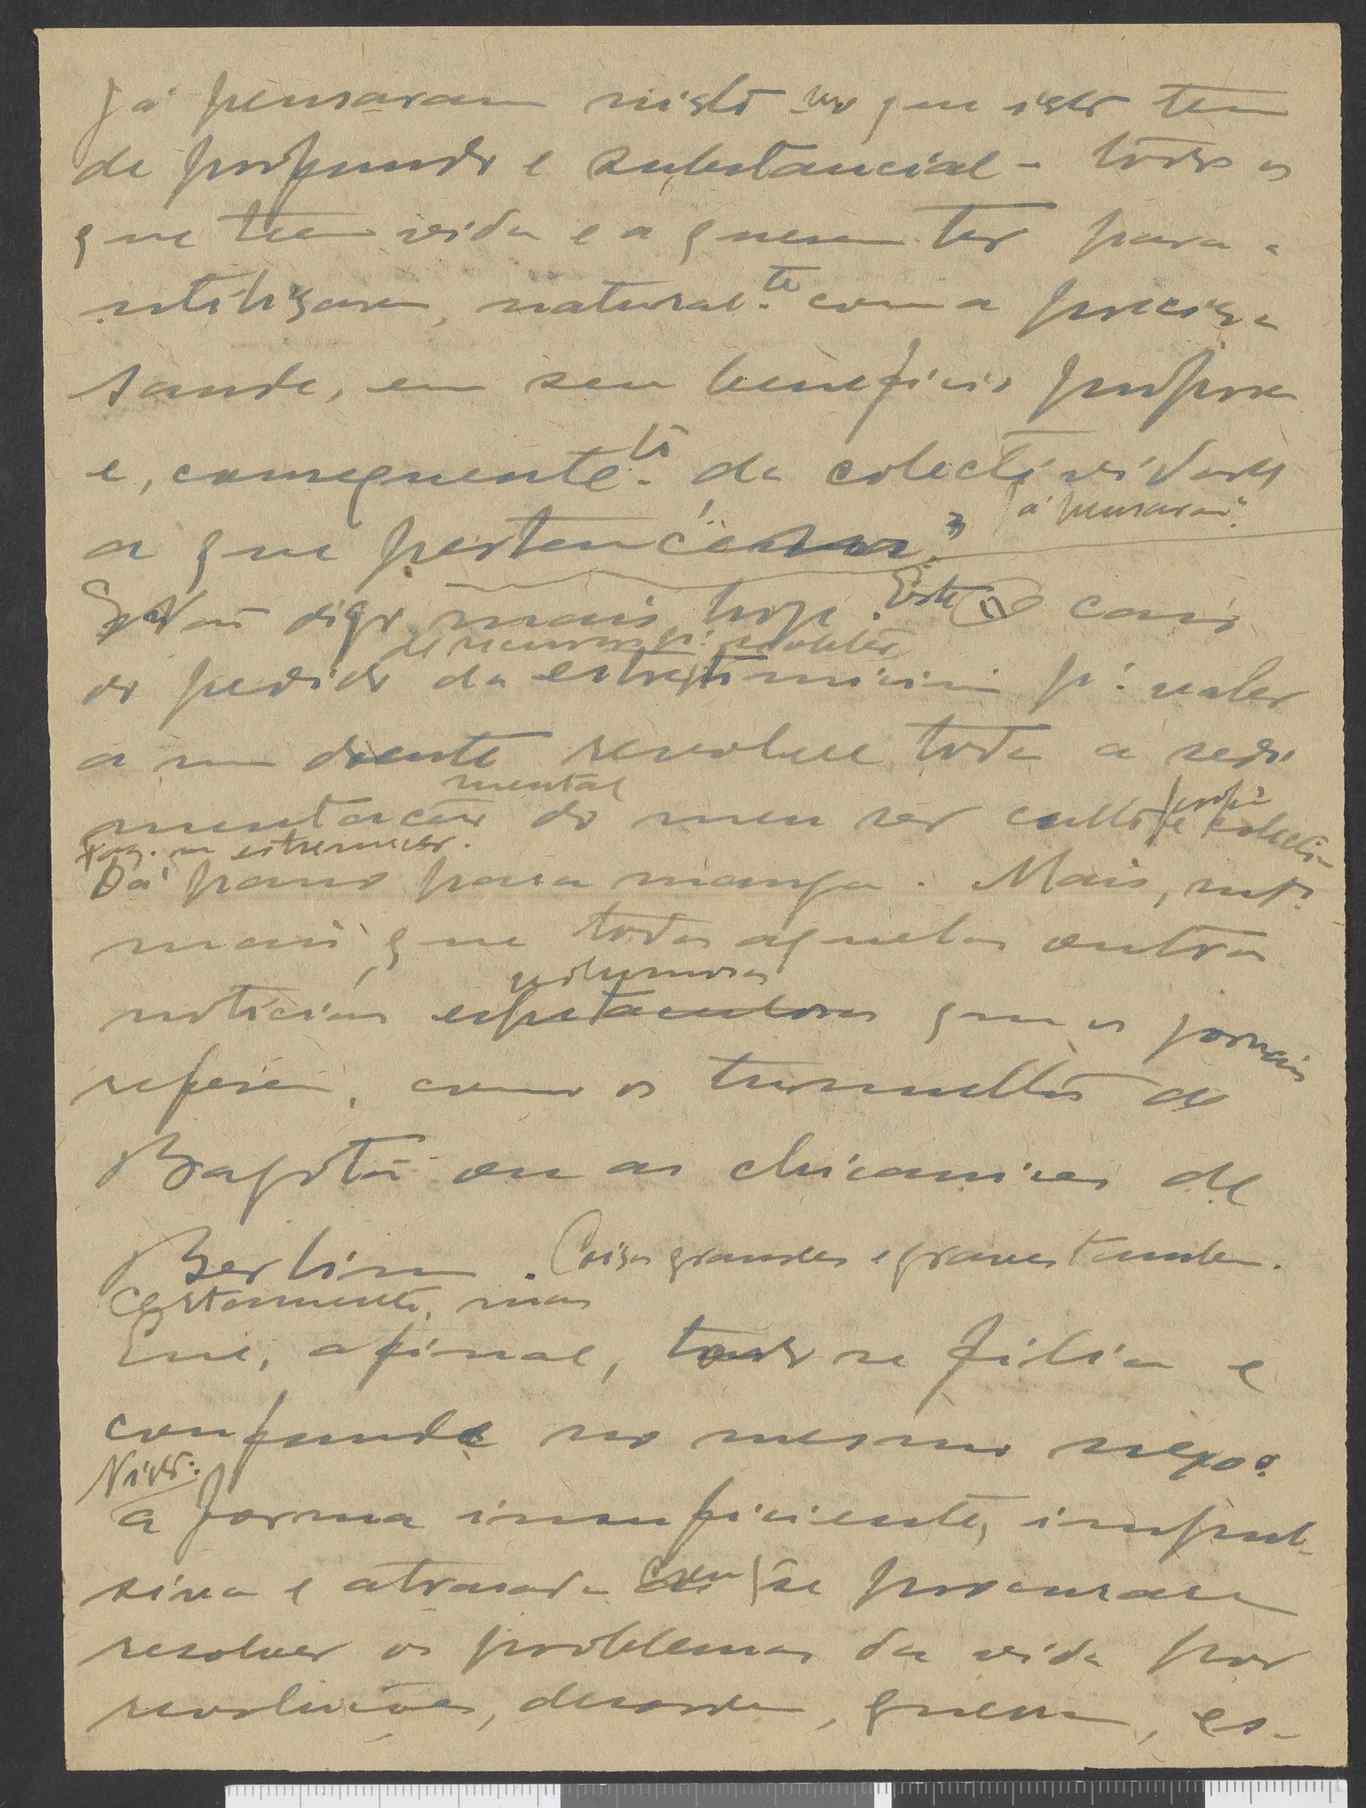 Já pensaram nisto no que isto tem
de profundo e substancial - todos os
que tem vida e a querem ter para a
utilizarem, natural.te com a precisa
saude, em seu beneficio proprio
e, consequente.te da colectividade
a que pertencem? Já pensaram?
Não digo mais hoje. Este caso
de recurso
do pedido da estreptomicina p.ª valer
a um doente revolve toda a sedi
mental
mentação do meu ser culto e
Faz-me estremecer.
Dá pano para manga. Mais, mt.º
mais, que todas aquelas outras
volumosas
noticias espectaculosas que os jornais
referem, como os tumultos de
Bogotá ou as chicanices de
Berlim. Coisas grandes e graves tambem.
Certamente, mas
Que, afinal, tudo se filia e
confunde no mesmo nexo:
Nisto:
a forma insuficiente, impul-
siva e atrasada com se procuram
resolver os problemas da vida por
revoluções, desordem, guerra, es-